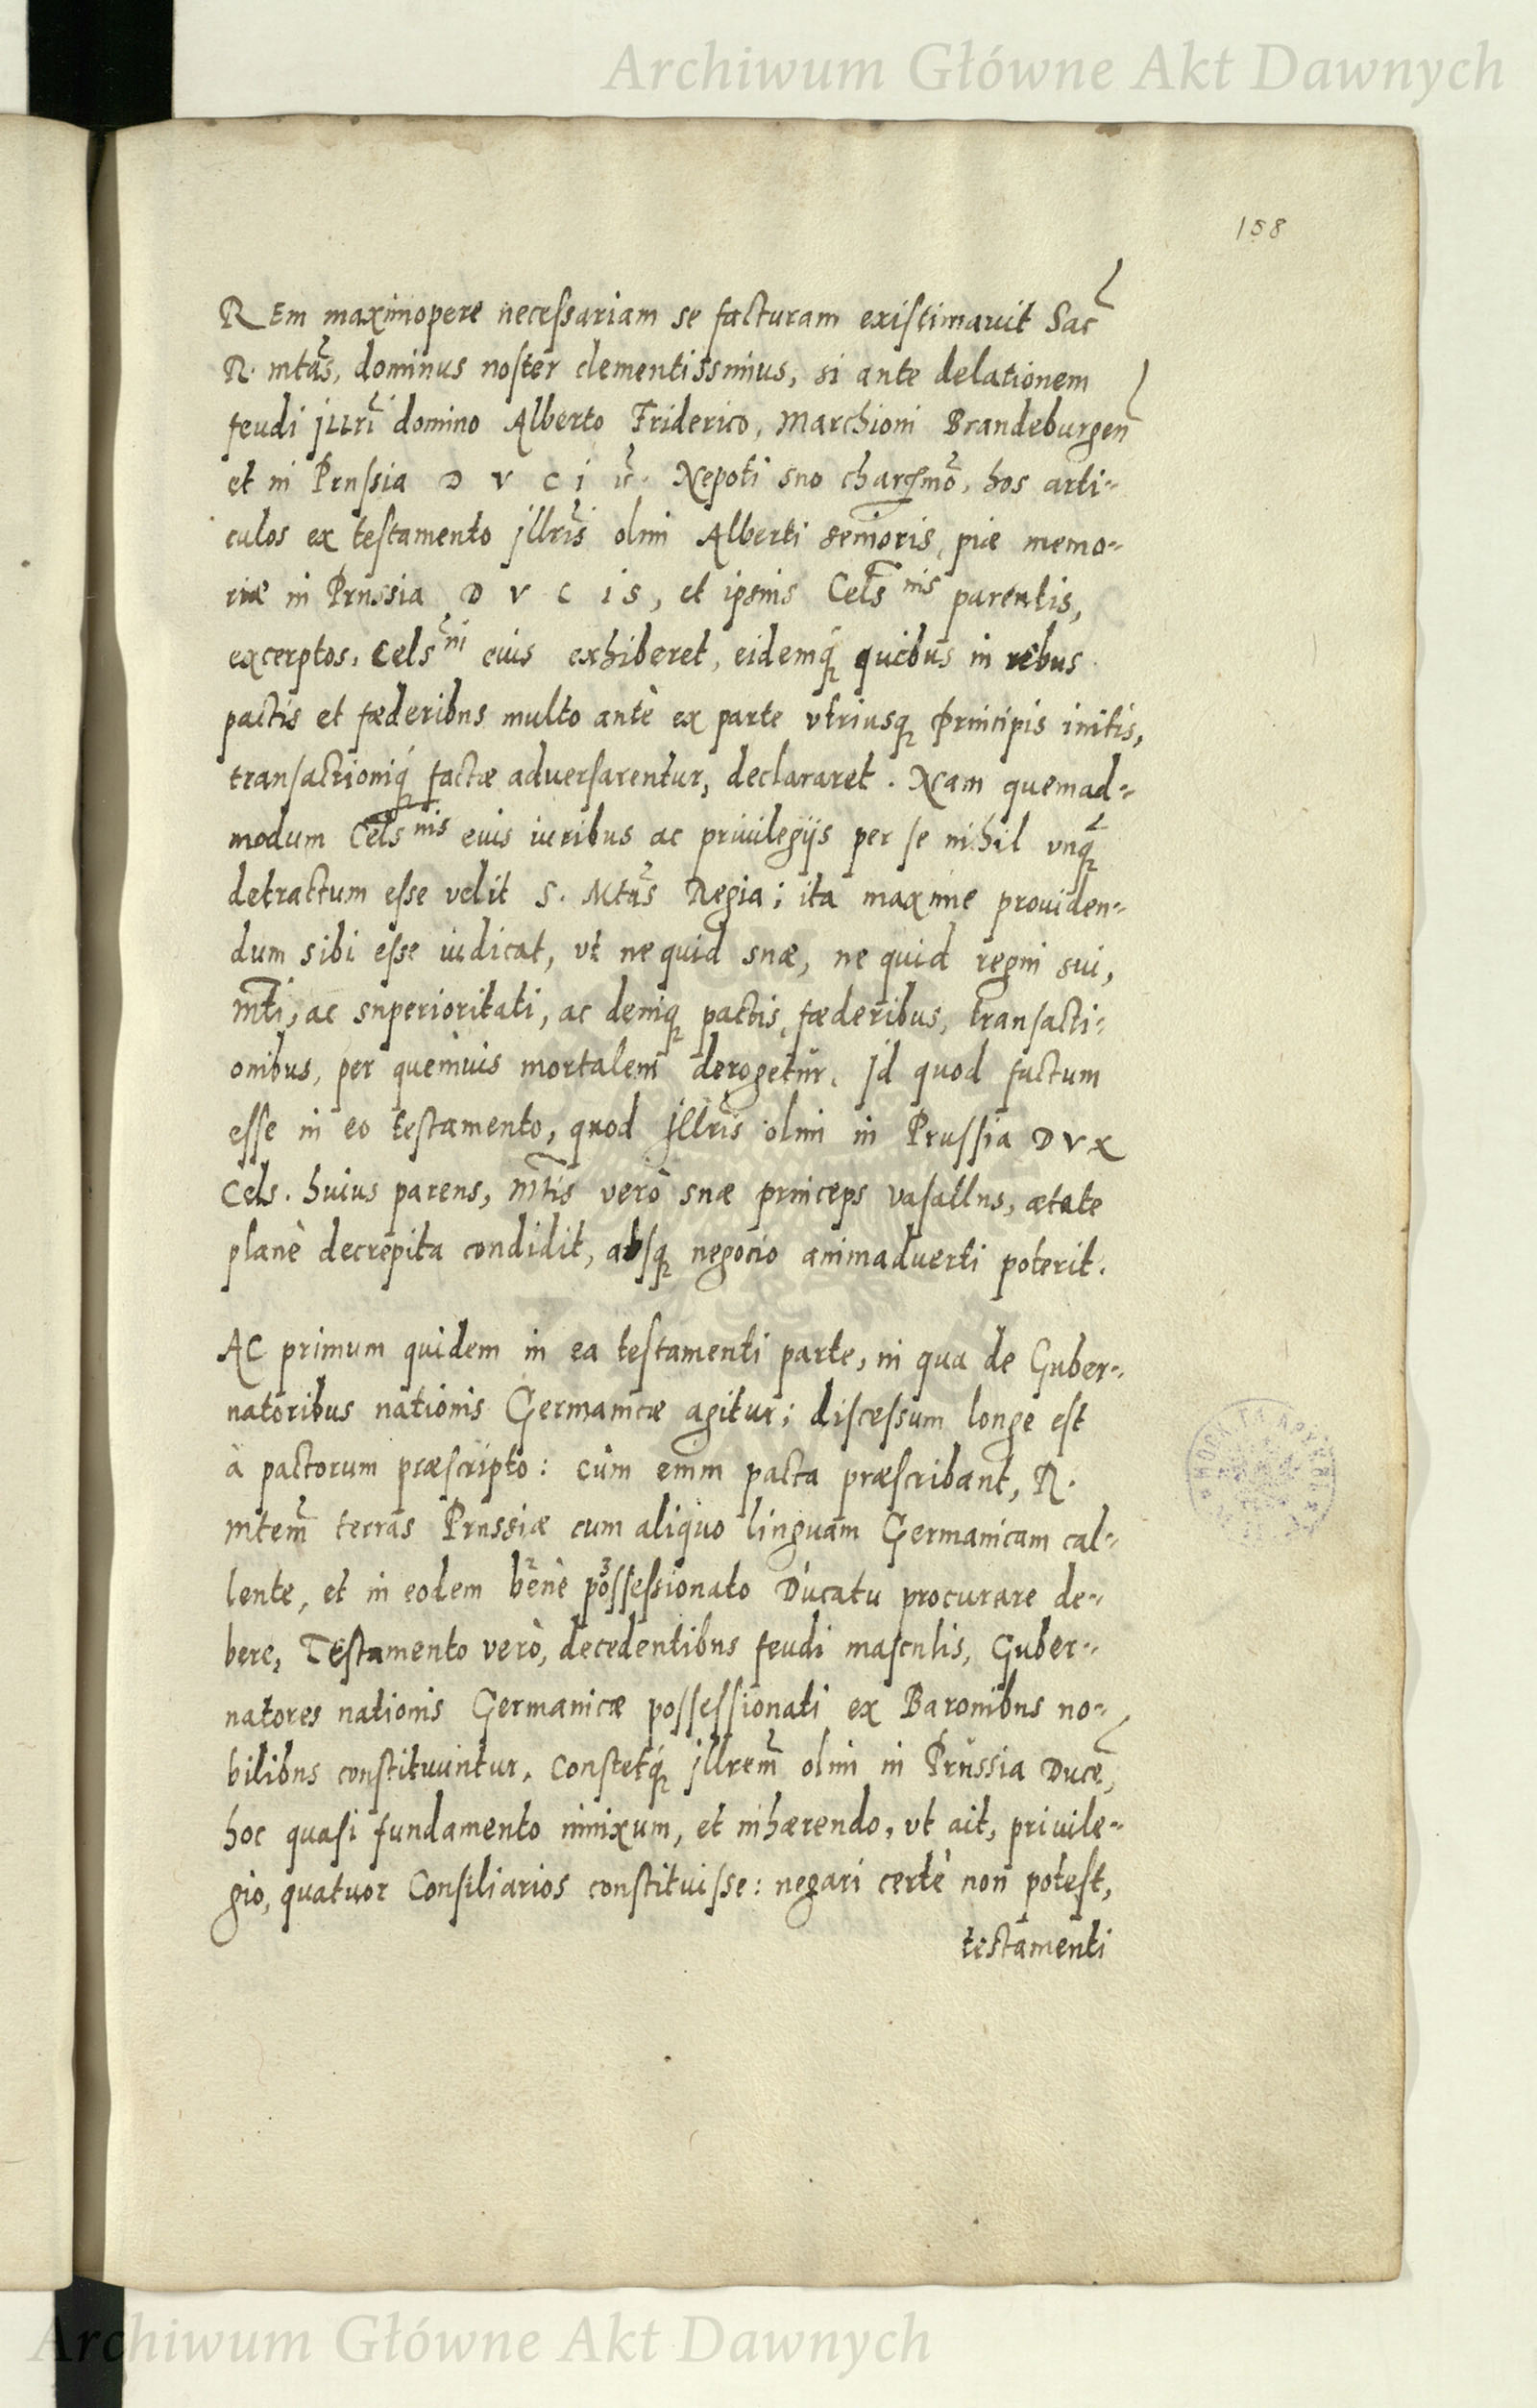 Archiwum Główne Akt Dawnych
158
REm maximopere necessariam se facturam existimavit Sac
R. mtas, dominus noster clementissimus, si ante delationem
feudi Illri domino Alberto Friderico, Marchioni Brandeburgen
et in Prussia D V C I &c. Nepoti suo charissmo, hos arti-
culos ex testamento Illris olim Alberti senioris, piæ memo-
riæ in Prussia D V C I S, et ipsius Cels nis parentis,
excerptos, Cels ni eius exhiberet, eidemq quibus in rebus
pactis et fœderibus multo antè ex parte vtriusq principis initis,
transactioniq factæ aduersarentur, declararet. Nam quemad-
modum Cels nis eius iuribus ac priuilegijs per se nihil vnq
detractum esse velit S. Mtas Regia; ita maxime prouiden-
dum sibi esse iudicat, vt ne quid suæ, ne quid regni sui,
mti, ac superioritati, ac deniq pactis, fœderibus, transacti-
onibus, per quemuis mortalem derogetur. Id quod factum
esse in eo testamento, quod Illris olim in Prussia DVX
Cels. huius parens, Mtis verò suæ princeps vasallus, ætate
planè decrepita condidit, absq negocio animaduerti poterit.
AC primum quidem in ea testamenti parte, in qua de Guber-
natoribus nationis Germanicæ agitur; discessum longe est
à pactorum præscripto: cùm enim pacta præscribant, R.
mtem terras Prussiæ cum aliquo linguam Germanicam cal-
lente, et in eodem benè possessionato Ducatu procurare de-
bere, Testamento verò, decedentibus feudi masculis, Guber-
natores nationis Germanicæ possessionati ex Baronibus no-
bilibus constituuntur. Constetq Illrem olim in Prussia Duce,
hoc quasi fundamento innixum, et inhærendo, vt ait, priuile-
gio, quatuor Consiliarios constituisse: negari certè non potest,
testamenti
Archiwum Główne Akt Dawnych